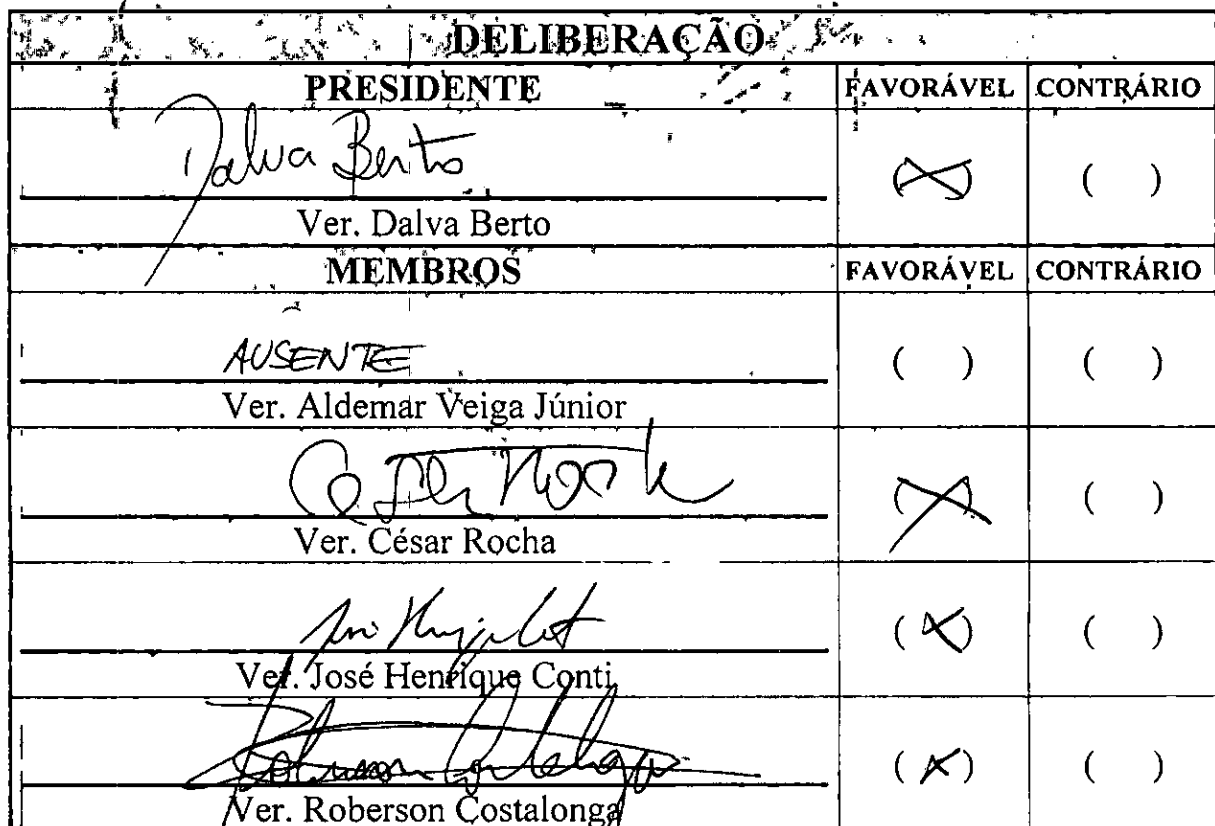 DELIBERAÇÃO
PRESIDENTE FAVORÁVEL CONTRÁRIO
Dalva Berto
(X) ( )
Ver. Dalva Berto
MEMBROS FAVORÁVEL CONTRÁRIO
AUSENTE
( ) ( )
Ver. Aldemar Veiga Júnior
(X) ( )
Ver. César Rocha
(X) ( )
Ver. José Henrique Conti
Roberson Costalonga
(X) ( )
Ver. Roberson Costalonga